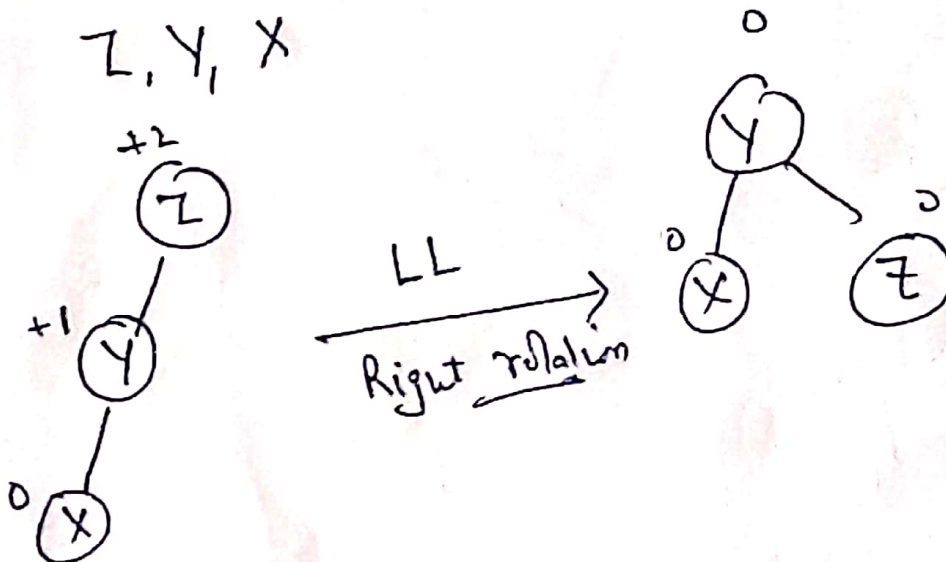 Z, Y, X
+2
Z
+1
Y
0
X
LL
Right rotation
0
Y
0
X
0
Z